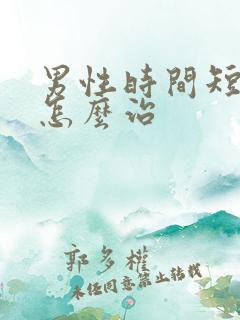 男性時間短
怎麼治
郭多權
未任同意禁止转载